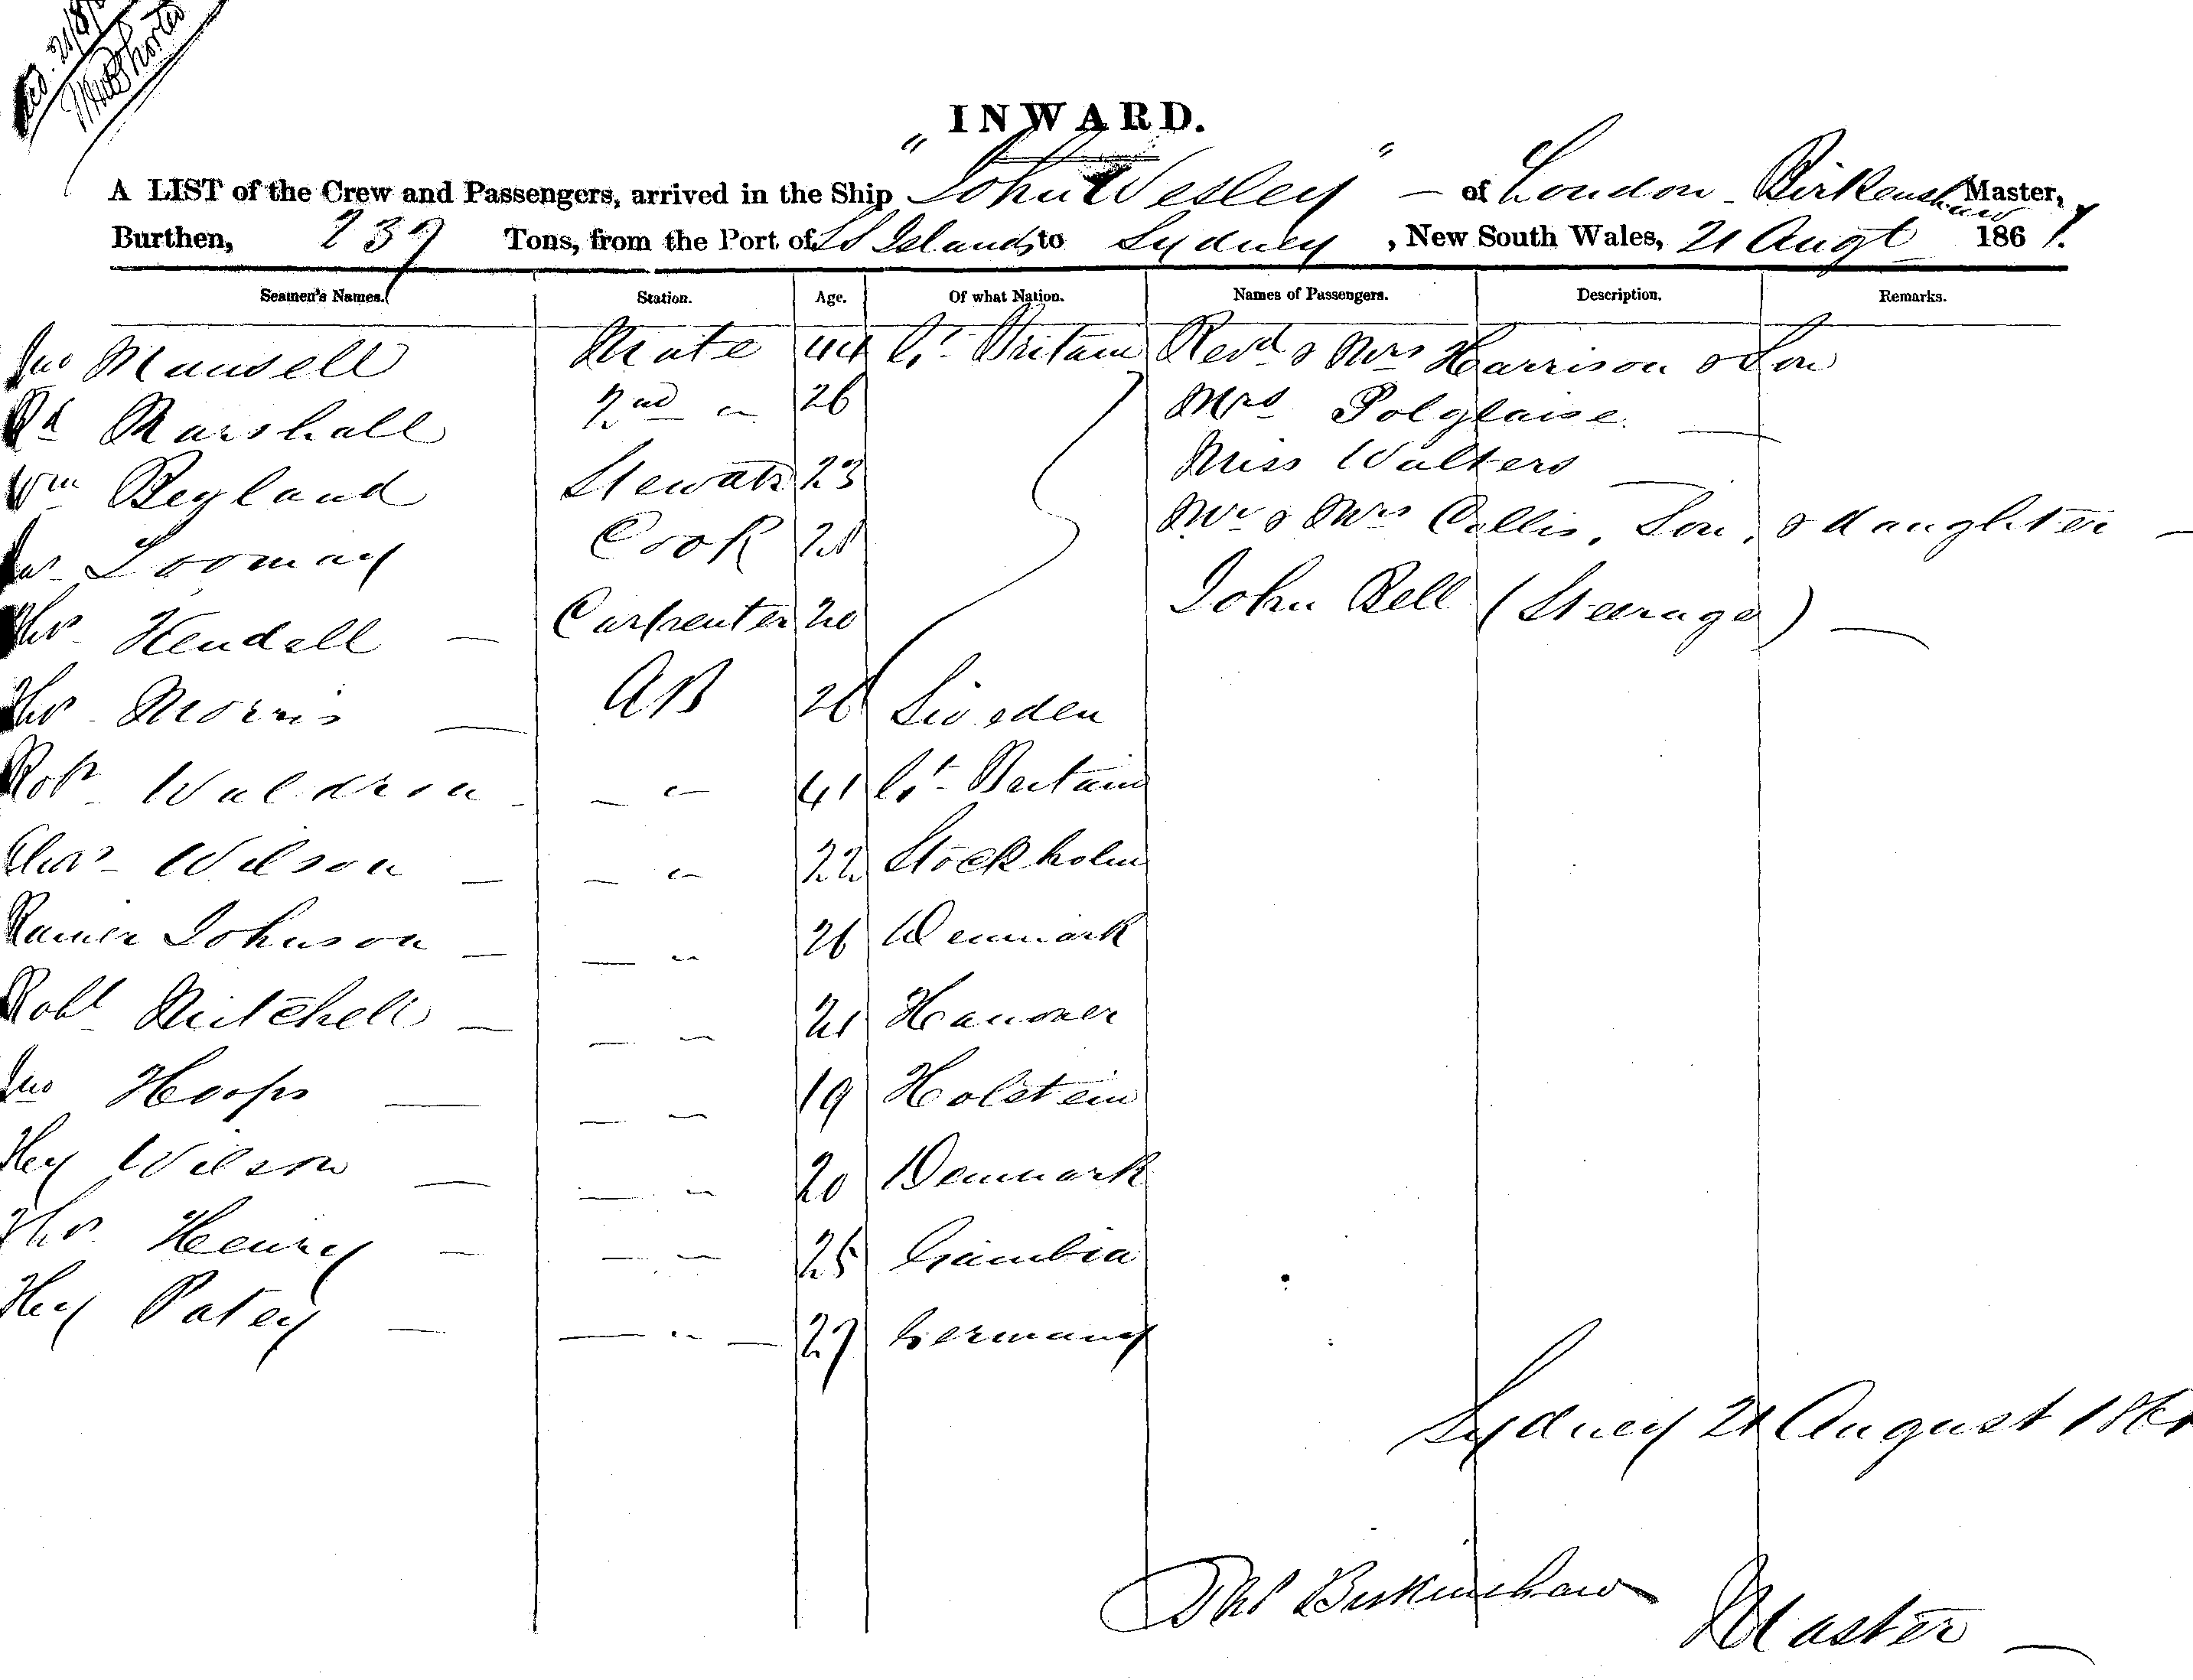 INWARD.
A LIST of the Crew and Passengers, arrived in the Ship "John Wesley" — of London Birkenshaw Master,
Burthen, 237 Tons, from the Port of SS Islands to Sydney, New South Wales, 21 Augt 1861.
Seamen's Names. Station. Age. Of what Nation. Names of Passengers. Description. Remarks.
Jno Maunsell Mate 44 Gt Britain Revd & Mrs Harrison & Son
Rd Marshall 2nd " 26 Mrs Polglaise
Wm Beyland Steward 23 Miss Walters
Loomay Cook 28 Mr & Mrs Collis, Son, & daughter
Thos Kendall Carpenter 20 John Bell (Steerage)
Thos Morris AB 26 Sweden
Robt Waldron " 41 Gt Britain
Chas Wilson " 22 Stockholm
Ramer Johnson " 26 Denmark
Robt Mitchell " 21 Hanover
Jno Hoops " 19 Holstein
Hey Wilson " 20 Denmark
Thos Henry " 25 Gambia
Hey Patey " 27 Germany
Sydney 21 August 1861
Thos Birkinshaw Master